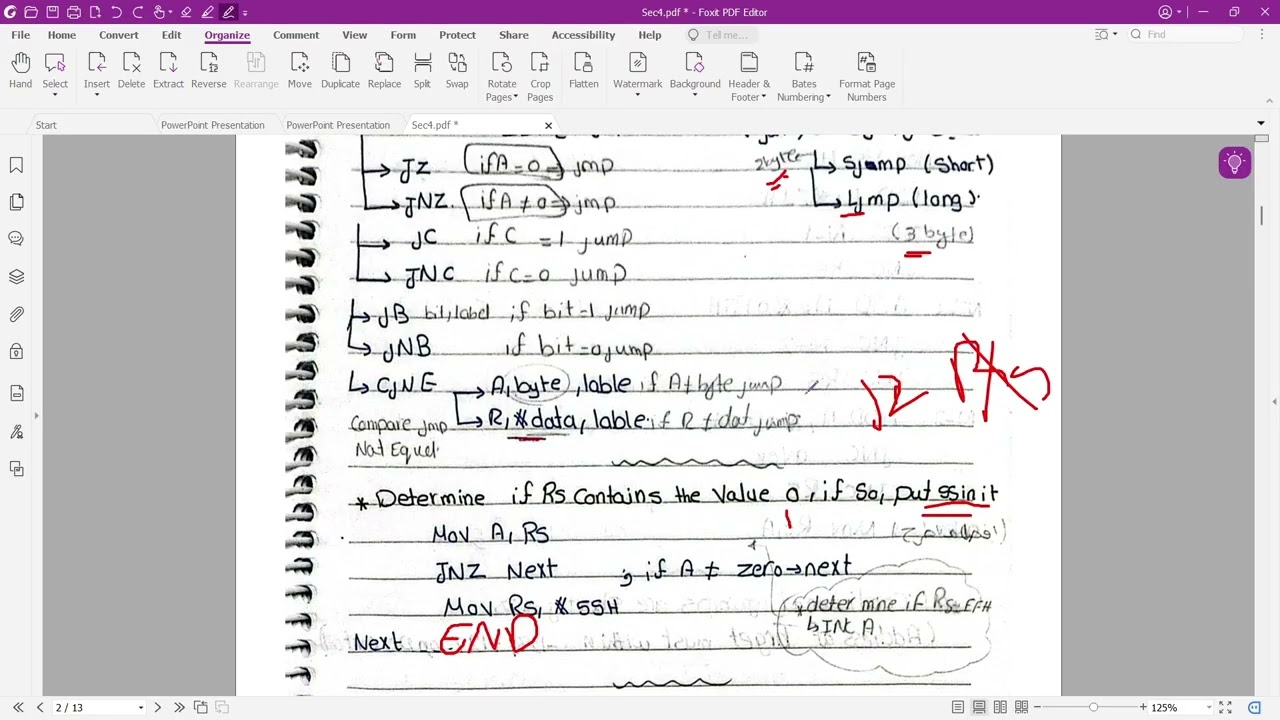 Sec4.pdf * - Foxit PDF Editor
File Home Convert Edit Organize Comment View Form Protect Share Accessibility Help Tell me... Find
Hand Select Insert Delete Extract Reverse Rearrange Move Duplicate Replace Split Swap Rotate Pages Crop Pages Flatten Watermark Background Header & Footer Bates Numbering Format Page Numbers
Start PowerPoint Presentation PowerPoint Presentation Sec4.pdf *
JZ if A=0 → jmp
2byte Sjamp (Short)
JNZ. if A ≠ 0 → jmp
Ljmp (long).
JC if C =1 jump
(3 byte)
JNC if C=0 jump
JB bit, label if bit=1 jump
JNB if bit=0 jump
CJNE A, byte, lable if A≠byte jump
R, #data, lable if R≠dat jump
Compare jmp
Not Equel
JZ R5
* Determine if R5 Contains the Value 0, if So, put 55 in it
Mov A, R5
JNZ Next ; if A ≠ zero → next
Mov R5, #55H
* determine if R5=EFH
↳ INC A
Next END
2 / 13 125%